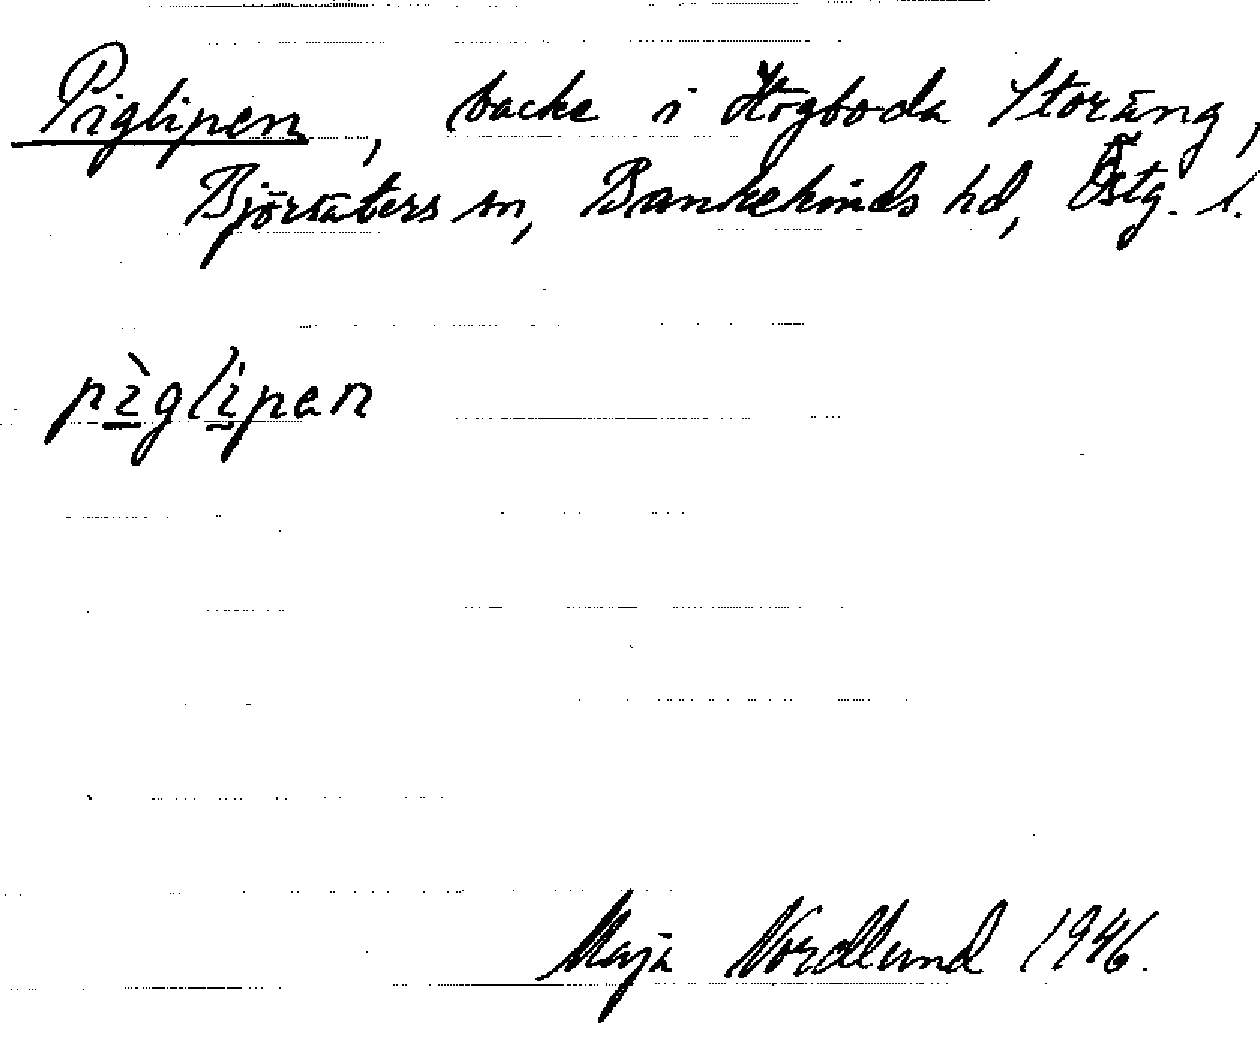 Piglipen, backe i Högboda Storäng,
Björsäters sn, Bankekinds hd, Östg. l.
pìglipen
Maja Nordlund 1946.